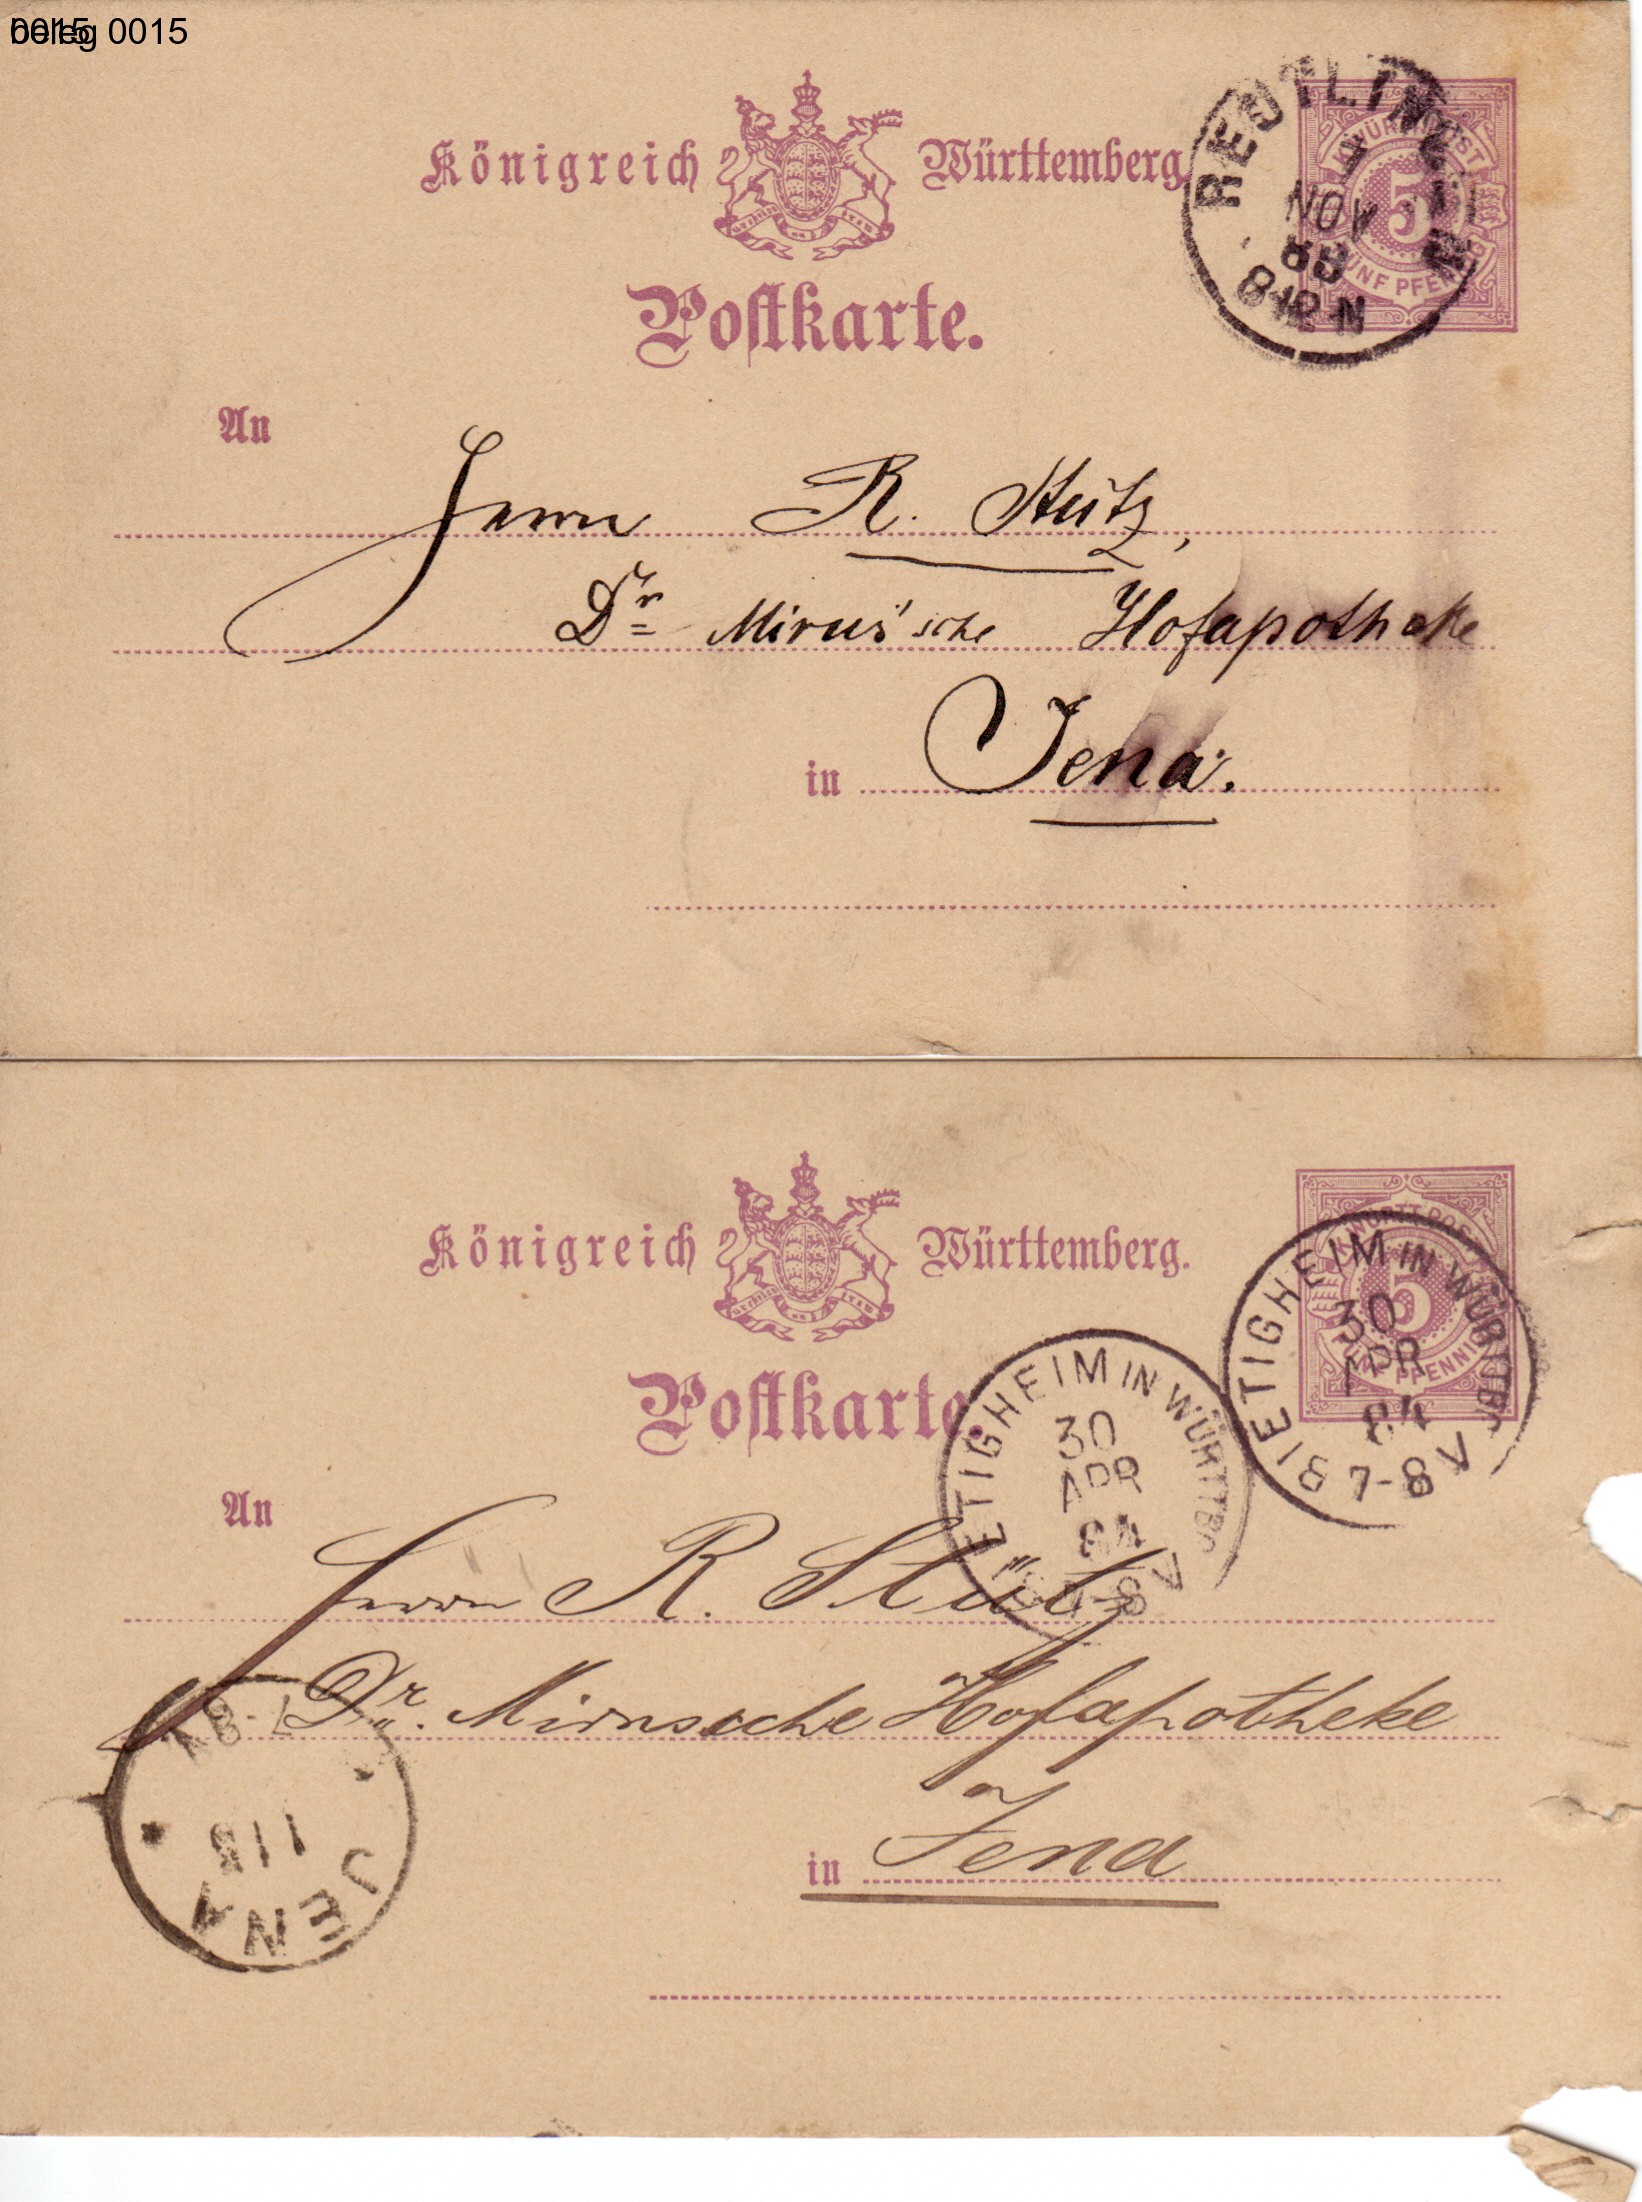 beleg 0015
Königreich Württemberg.
Postkarte.
REUTLINGEN
NOV
8-12 N
K. WÜRTT. POST
5
FÜNF PFENNIG
An
Herrn R. Stütz,
Dr Mirus'sche Hofapotheke
in Jena.
Königreich Württemberg.
Postkarte.
K. WÜRTT. POST
5
FÜNF PFENNIG
BIETIGHEIM IN WÜRTTBG
30
APR
84
7-8 V
BIETIGHEIM IN WÜRTTBG
30
APR
84
7-8 V
An
Herrn R. Stütz
Dr. Mirussche Hofapotheke
in Jena
JENA